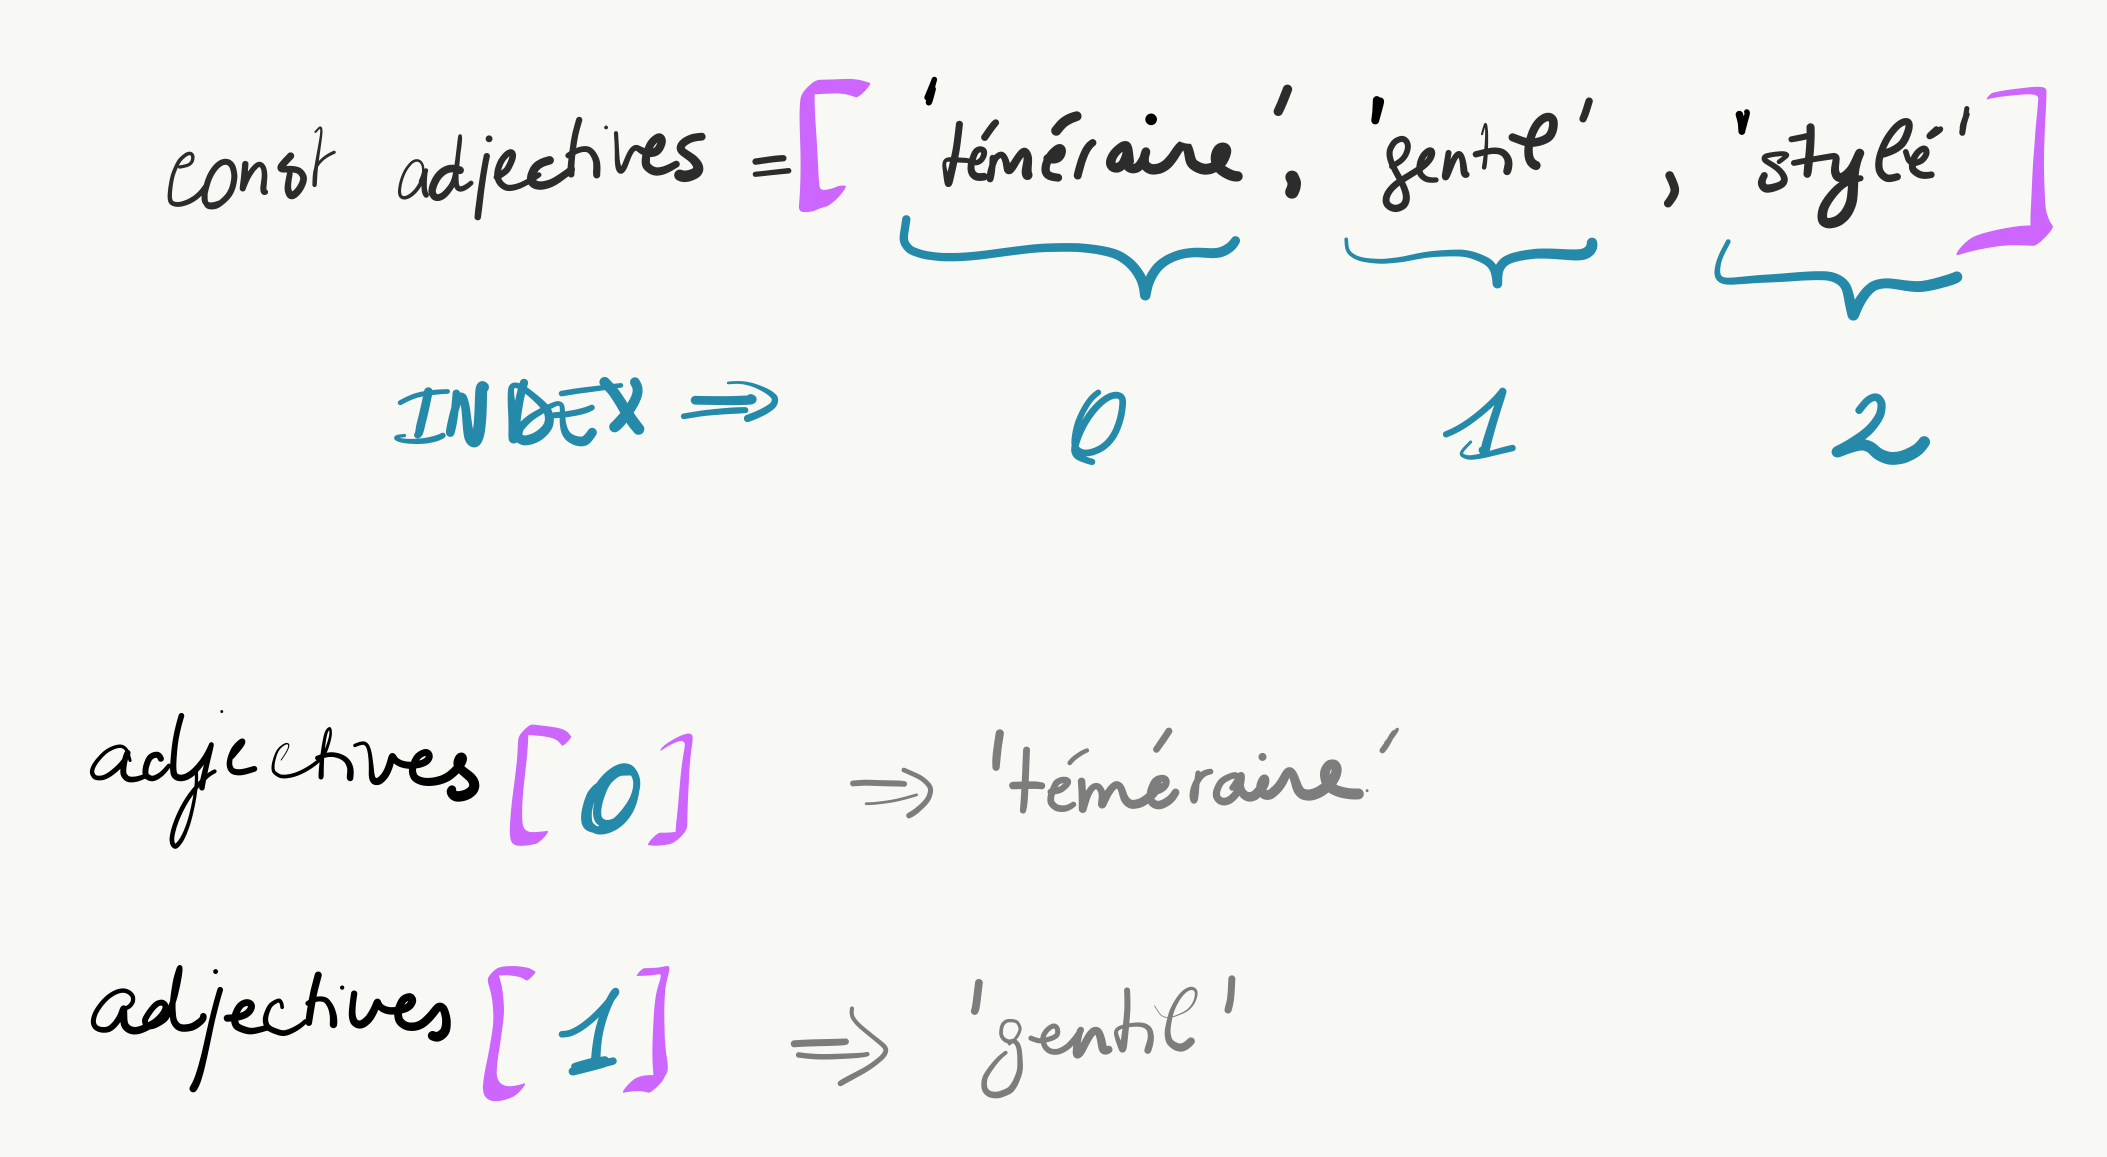 const adjectives = [ 'téméraire', 'gentil', 'stylé' ]
INDEX ⇒ 0 1 2
adjectives [ 0 ] ⇒ 'téméraire'
adjectives [ 1 ] ⇒ 'gentil'